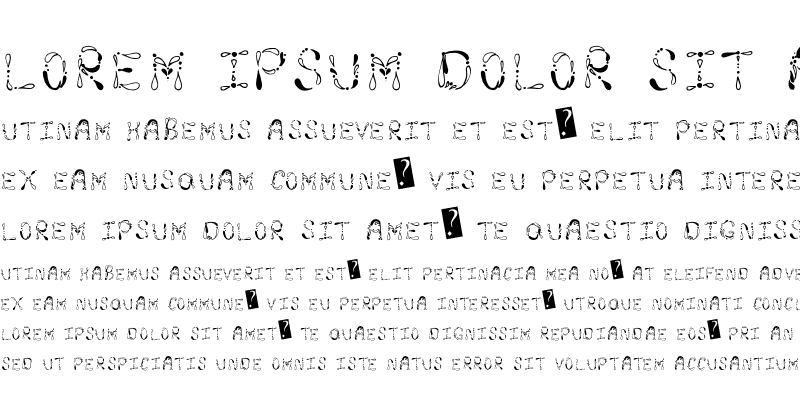 LOREM IPSUM DOLOR SIT A
UTINAM HABEMUS ASSUEVERIT ET EST? ELIT PERTINA
EX EAM NUSQUAM COMMUNE? VIS EU PERPETUA INTERE
LOREM IPSUM DOLOR SIT AMET? TE QUAESTIO DIGNISS
UTINAM HABEMUS ASSUEVERIT ET EST? ELIT PERTINACIA MEA NO? AT ELEIFEND ADVE
EX EAM NUSQUAM COMMUNE? VIS EU PERPETUA INTERESSET? UTROQUE NOMINATI CONCL
LOREM IPSUM DOLOR SIT AMET? TE QUAESTIO DIGNISSIM REPUDIANDAE EOS? PRI AN
SED UT PERSPICIATIS UNDE OMNIS ISTE NATUS ERROR SIT VOLUPTATEM ACCUSANTIUM